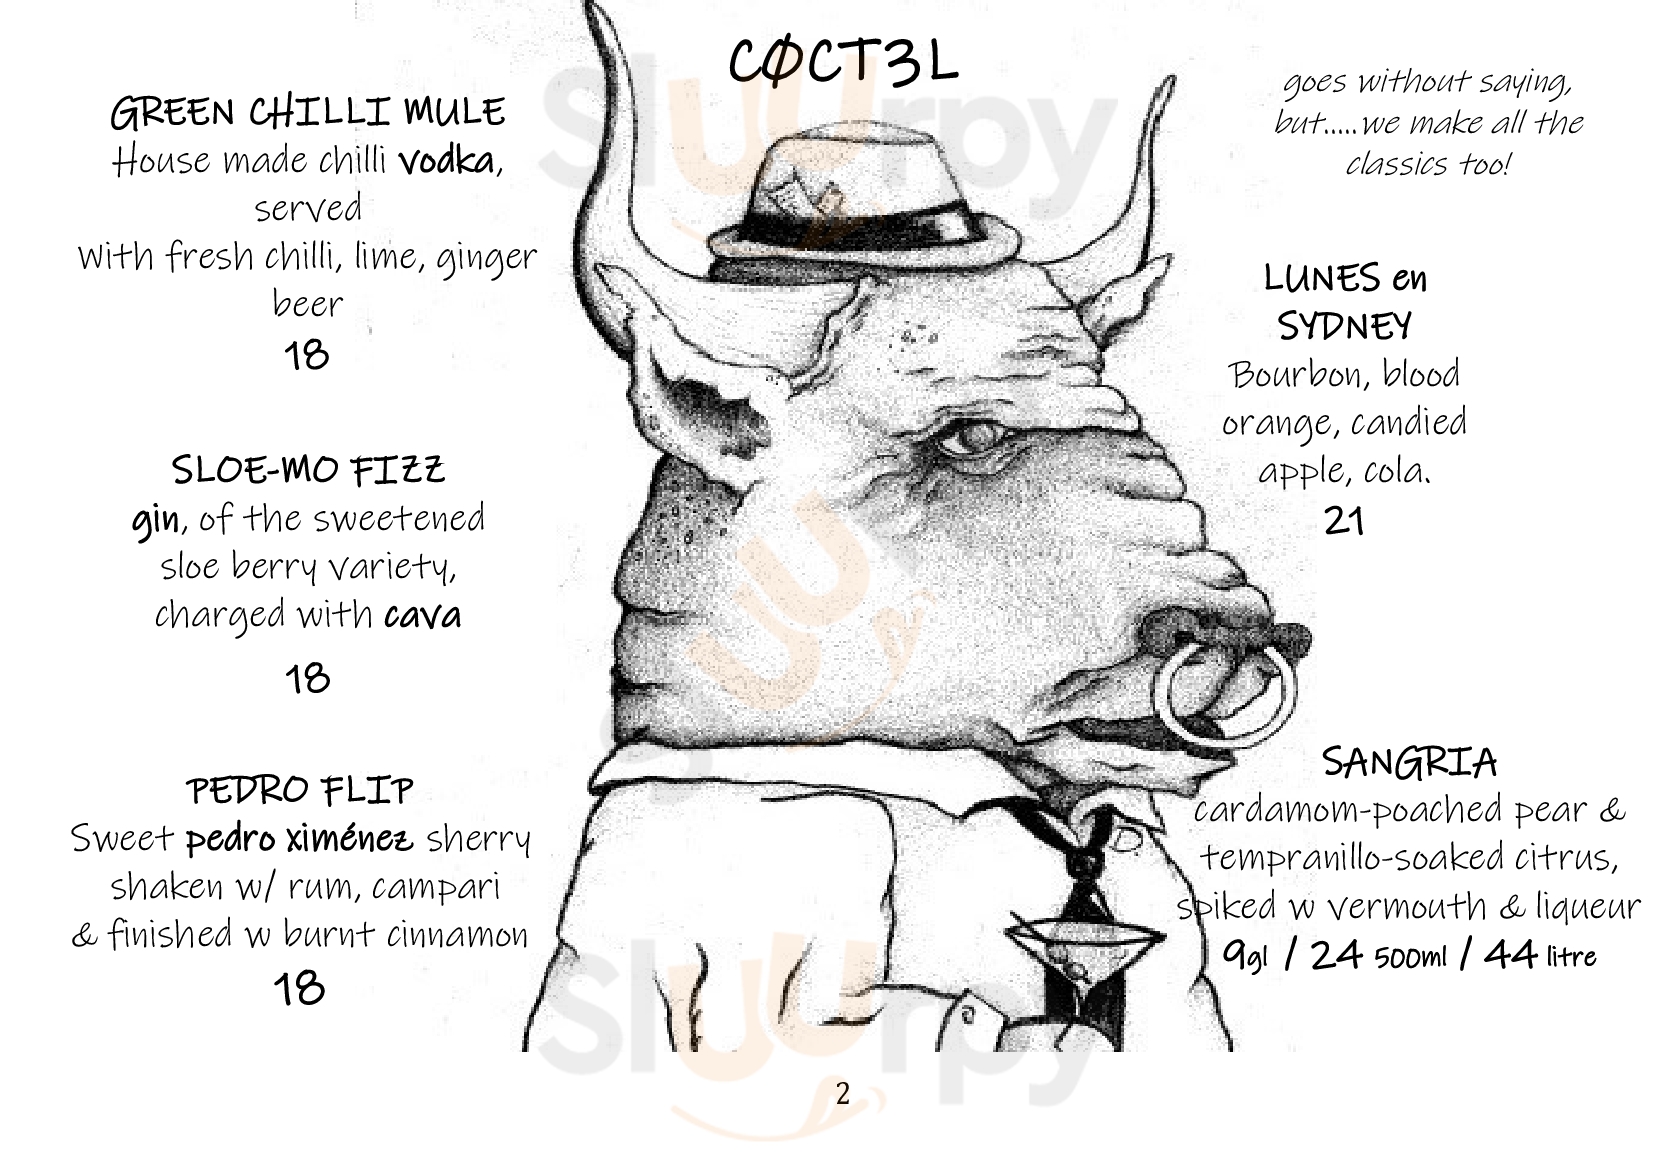 CØCT3L
GREEN CHILLI MULE
House made chilli vodka,
served
With fresh chilli, lime, ginger
beer
18
SLOE-MO FIZZ
gin, of the sweetened
sloe berry variety,
charged with cava
18
PEDRO FLIP
Sweet pedro ximénez sherry
shaken w/ rum, campari
& finished w burnt cinnamon
18
goes without saying,
but.....we make all the
classics too!
LUNES en
SYDNEY
Bourbon, blood
orange, candied
apple, cola.
21
SANGRIA
cardamom-poached pear &
tempranillo-soaked citrus,
spiked w vermouth & liqueur
9gl / 24 500ml / 44 litre
2
Sluurpy
Sluurpy
Sluurpy